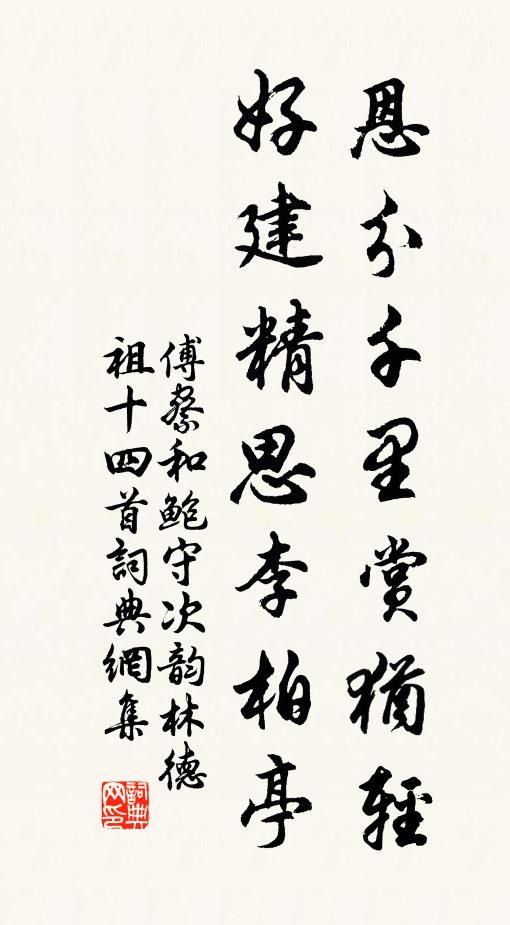 恩分千里賞猶輕
好建精思李柏亭
傅察和鮑守次韵林德
祖十四首詞典網集
詞典网印